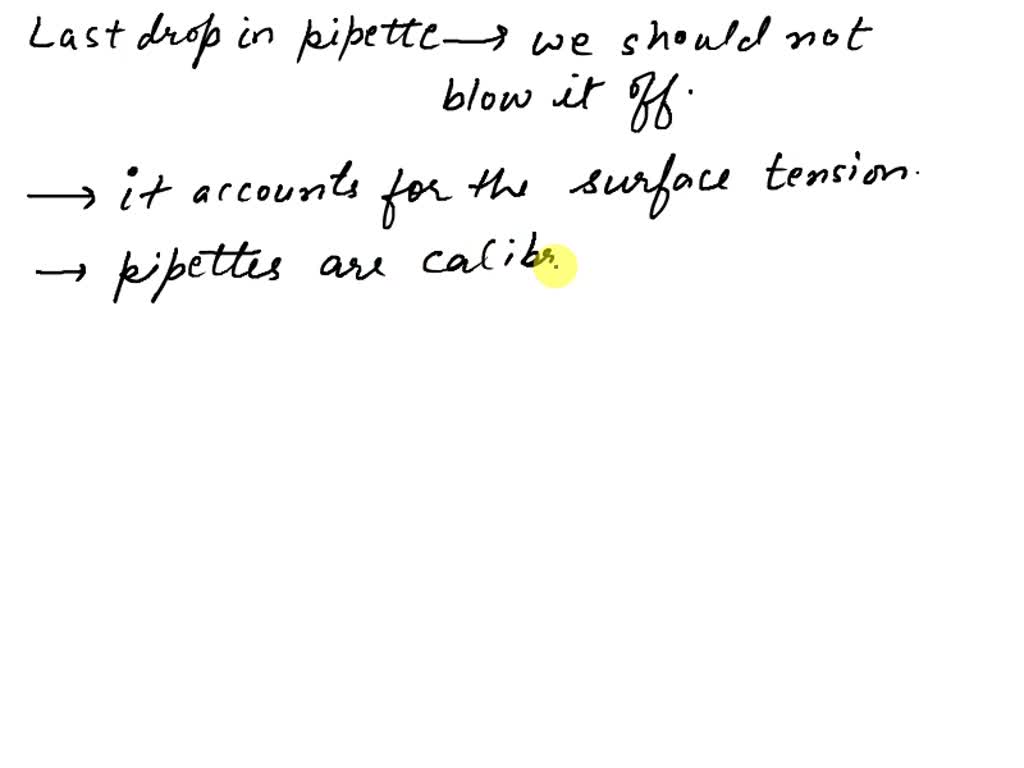 Last drop in pipette → we should not
blow it off.
→ it accounts for the surface tension.
→ pipettes are calibr